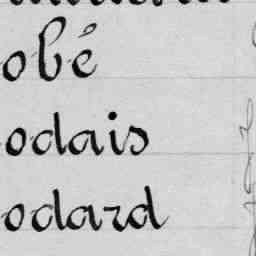 obé
odais
odard